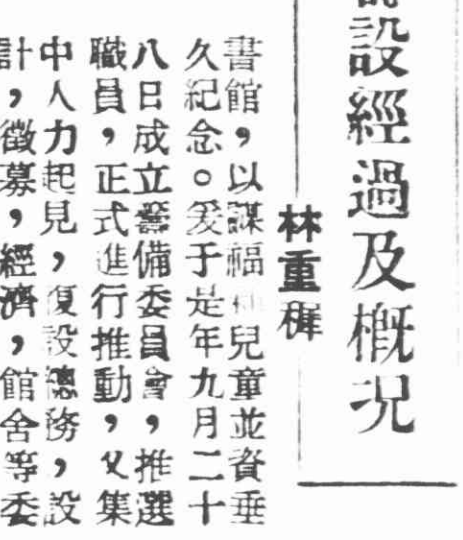 設經過及概況
林重穉
書館，以謀福兒童並資垂
久紀念。爰于是年九月二十
八日成立籌備委員會，推選
職員，正式進行推動，又集
中人力起見，復設總務，設
計，徵募，經濟，館舍等委